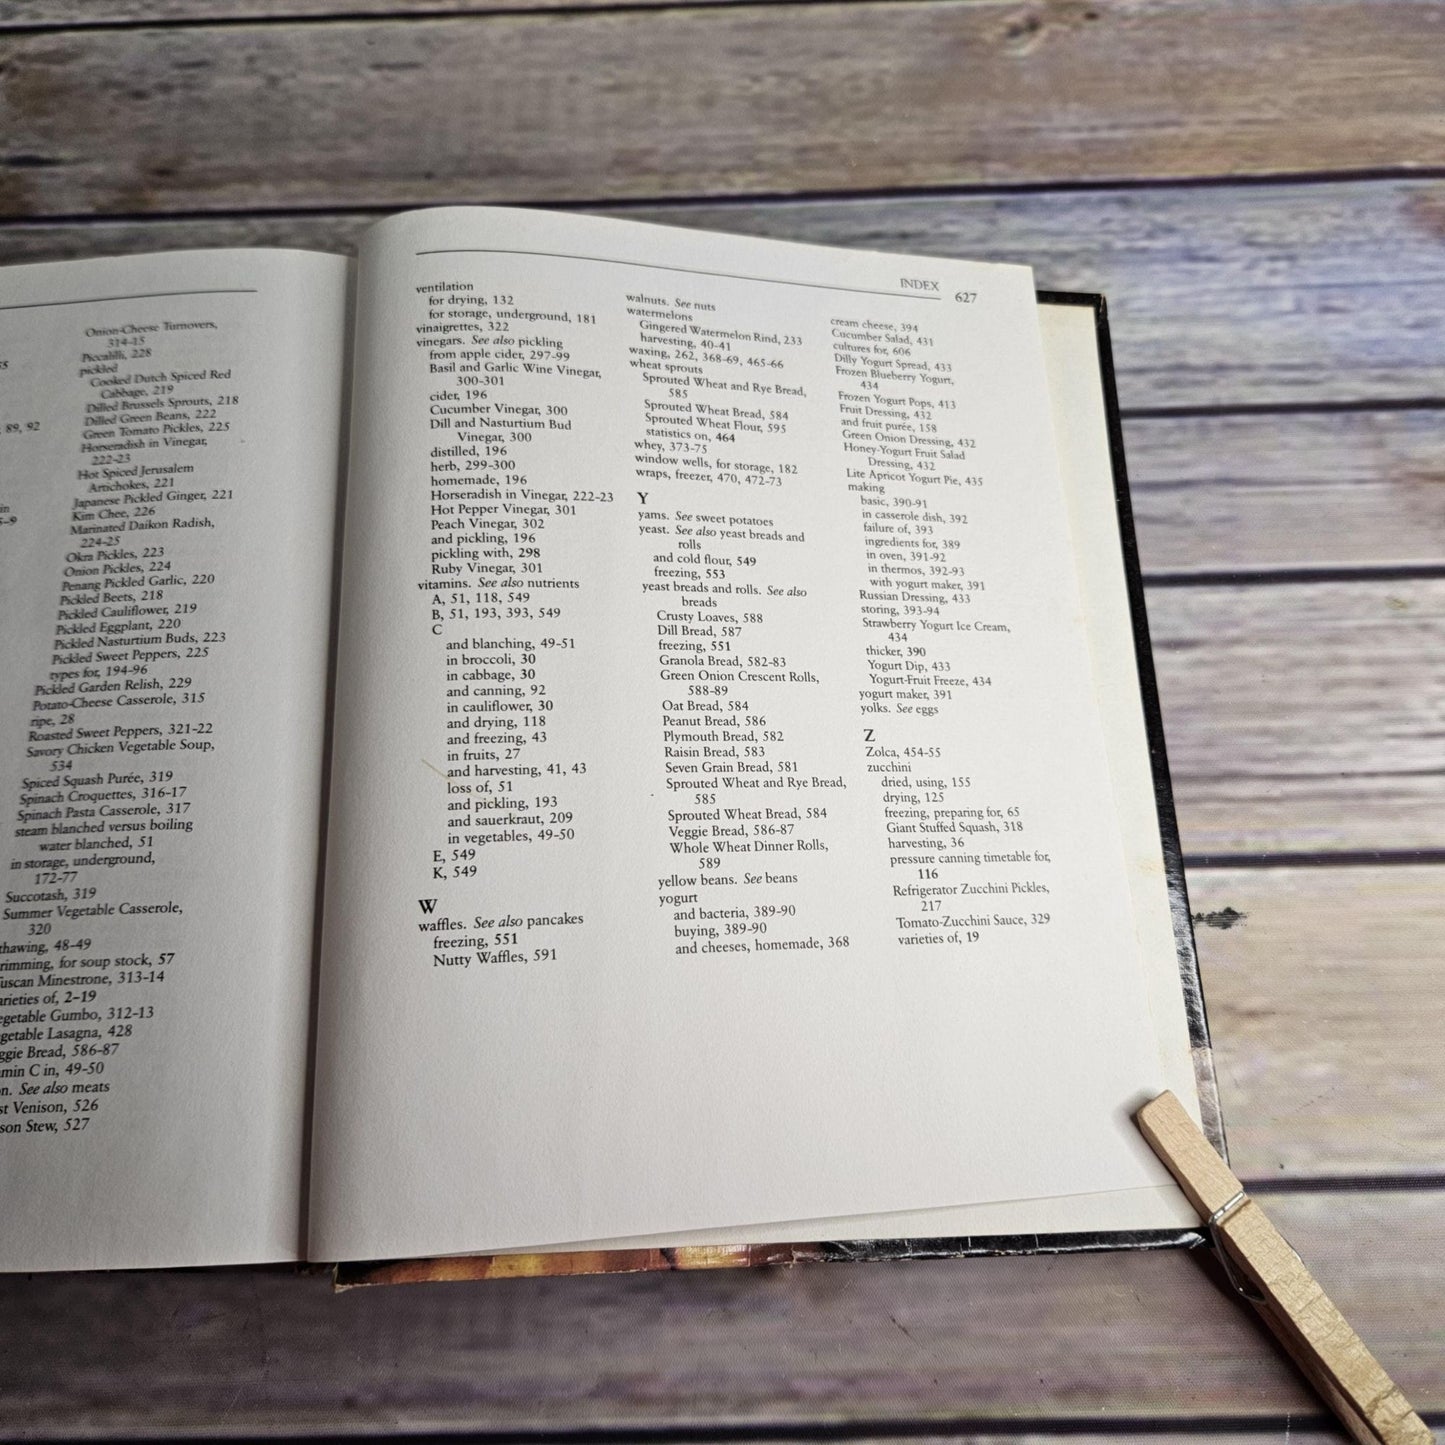 55
89, 92
in
5-9
Onion-Cheese Turnovers,
314-15
Piccalilli, 228
pickled
Cooked Dutch Spiced Red
Cabbage, 219
Dilled Brussels Sprouts, 218
Dilled Green Beans, 222
Green Tomato Pickles, 225
Horseradish in Vinegar,
222-23
Hot Spiced Jerusalem
Artichokes, 221
Japanese Pickled Ginger, 221
Kim Chee, 226
Marinated Daikon Radish,
224-25
Okra Pickles, 223
Onion Pickles, 224
Penang Pickled Garlic, 220
Pickled Beets, 218
Pickled Cauliflower, 219
Pickled Eggplant, 220
Pickled Nasturtium Buds, 223
Pickled Sweet Peppers, 225
types for, 194-96
Pickled Garden Relish, 229
Potato-Cheese Casserole, 315
ripe, 28
Roasted Sweet Peppers, 321-22
Savory Chicken Vegetable Soup,
534
Spiced Squash Purée, 319
Spinach Croquettes, 316-17
Spinach Pasta Casserole, 317
steam blanched versus boiling
water blanched, 51
in storage, underground,
172-77
Succotash, 319
Summer Vegetable Casserole,
320
thawing, 48-49
rimming, for soup stock, 57
uscan Minestrone, 313-14
arieties of, 2-19
egetable Gumbo, 312-13
getable Lasagna, 428
ggie Bread, 586-87
min C in, 49-50
n. See also meats
st Venison, 526
son Stew, 527
INDEX 627
ventilation
for drying, 132
for storage, underground, 181
vinaigrettes, 322
vinegars. See also pickling
from apple cider, 297-99
Basil and Garlic Wine Vinegar,
300-301
cider, 196
Cucumber Vinegar, 300
Dill and Nasturtium Bud
Vinegar, 300
distilled, 196
herb, 299-300
homemade, 196
Horseradish in Vinegar, 222-23
Hot Pepper Vinegar, 301
Peach Vinegar, 302
and pickling, 196
pickling with, 298
Ruby Vinegar, 301
vitamins. See also nutrients
A, 51, 118, 549
B, 51, 193, 393, 549
C
and blanching, 49-51
in broccoli, 30
in cabbage, 30
and canning, 92
in cauliflower, 30
and drying, 118
and freezing, 43
in fruits, 27
and harvesting, 41, 43
loss of, 51
and pickling, 193
and sauerkraut, 209
in vegetables, 49-50
E, 549
K, 549
W
waffles. See also pancakes
freezing, 551
Nutty Waffles, 591
walnuts. See nuts
watermelons
Gingered Watermelon Rind, 233
harvesting, 40-41
waxing, 262, 368-69, 465-66
wheat sprouts
Sprouted Wheat and Rye Bread,
585
Sprouted Wheat Bread, 584
Sprouted Wheat Flour, 595
statistics on, 464
whey, 373-75
window wells, for storage, 182
wraps, freezer, 470, 472-73
Y
yams. See sweet potatoes
yeast. See also yeast breads and
rolls
and cold flour, 549
freezing, 553
yeast breads and rolls. See also
breads
Crusty Loaves, 588
Dill Bread, 587
freezing, 551
Granola Bread, 582-83
Green Onion Crescent Rolls,
588-89
Oat Bread, 584
Peanut Bread, 586
Plymouth Bread, 582
Raisin Bread, 583
Seven Grain Bread, 581
Sprouted Wheat and Rye Bread,
585
Sprouted Wheat Bread, 584
Veggie Bread, 586-87
Whole Wheat Dinner Rolls,
589
yellow beans. See beans
yogurt
and bacteria, 389-90
buying, 389-90
and cheeses, homemade, 368
cream cheese, 394
Cucumber Salad, 431
cultures for, 606
Dilly Yogurt Spread, 433
Frozen Blueberry Yogurt,
434
Frozen Yogurt Pops, 413
Fruit Dressing, 432
and fruit purée, 158
Green Onion Dressing, 432
Honey-Yogurt Fruit Salad
Dressing, 432
Lite Apricot Yogurt Pie, 435
making
basic, 390-91
in casserole dish, 392
failure of, 393
ingredients for, 389
in oven, 391-92
in thermos, 392-93
with yogurt maker, 391
Russian Dressing, 433
storing, 393-94
Strawberry Yogurt Ice Cream,
434
thicker, 390
Yogurt Dip, 433
Yogurt-Fruit Freeze, 434
yogurt maker, 391
yolks. See eggs
Z
Zolca, 454-55
zucchini
dried, using, 155
drying, 125
freezing, preparing for, 65
Giant Stuffed Squash, 318
harvesting, 36
pressure canning timetable for,
116
Refrigerator Zucchini Pickles,
217
Tomato-Zucchini Sauce, 329
varieties of, 19